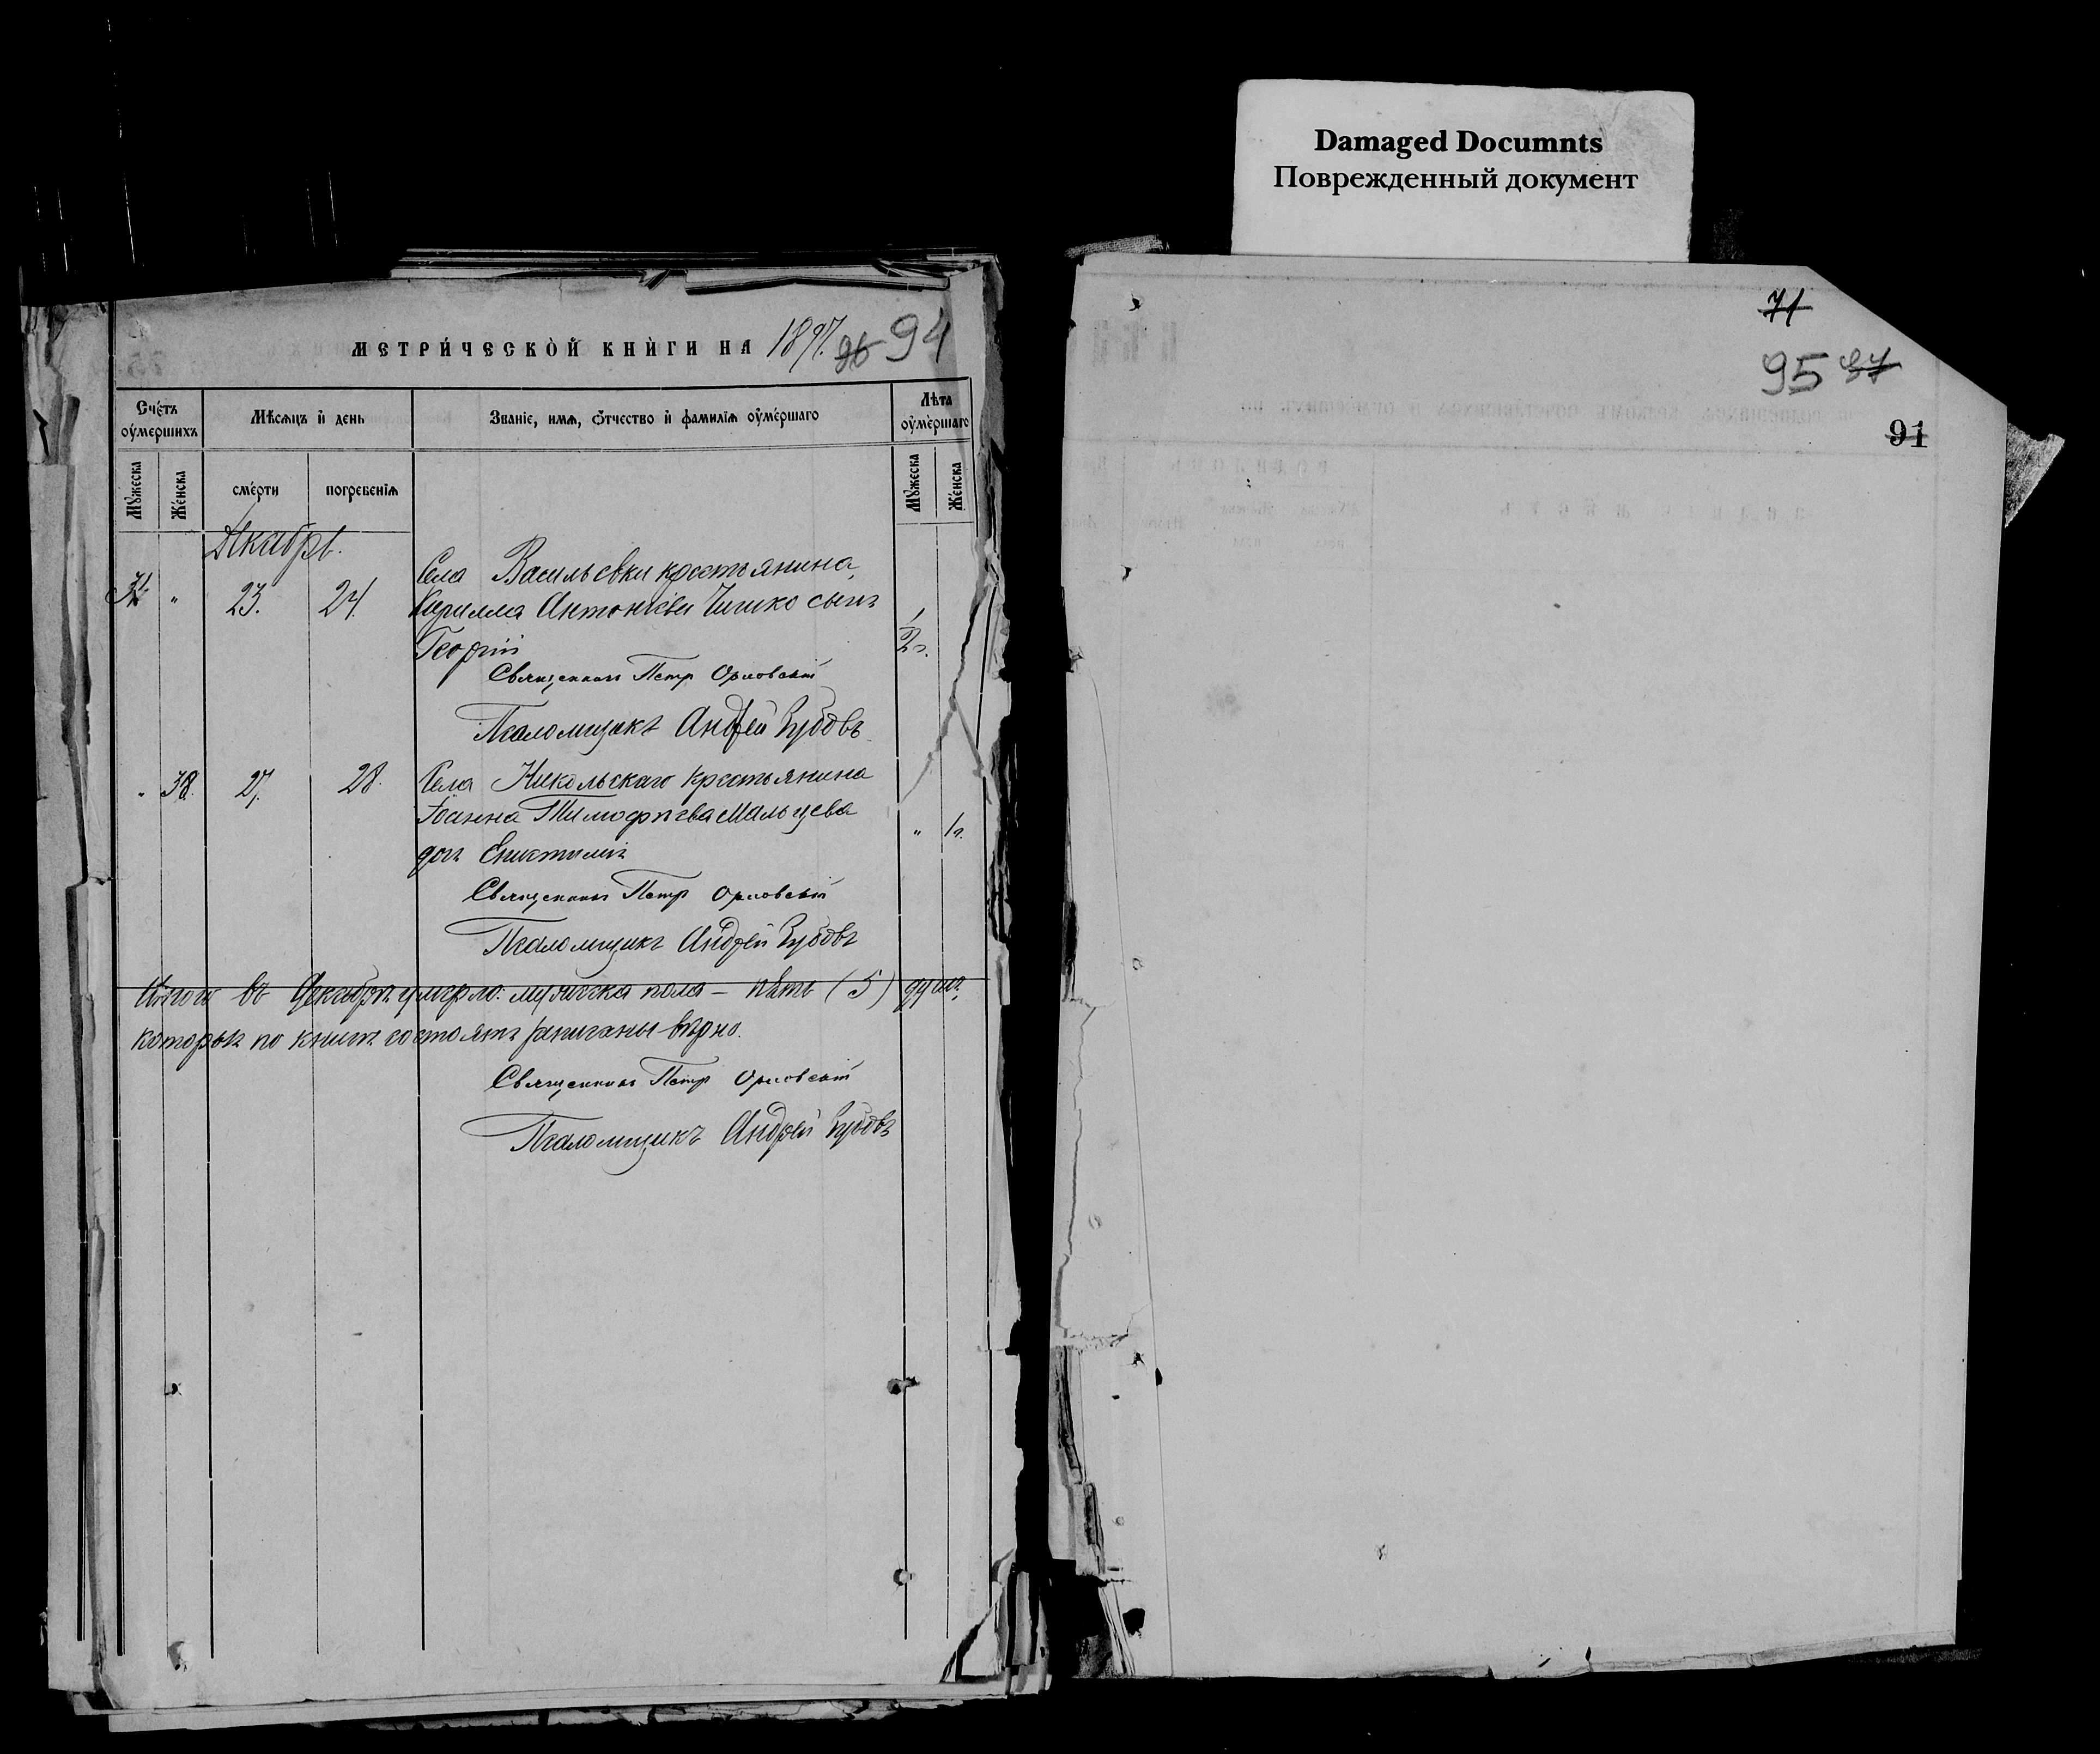 Damaged Documnts
Поврежденный документ
метри́ческо̀й кни̑ги на 1897. 96 94
Сче́тъ оу҆ме́ршихъ
Мѣ́сѧцъ и҆ день
Зва́нїе, и҆мѧ, ѻ҆́тчество и҆ фами́лїѧ оу҆ме́ршаго
Лѣ́та оу҆ме́ршаго
Мꙋ́жеска
Же́нска
сме́рти
погребе́нїѧ
Мꙋ́жеска
Же́нска
Декабрь.
Села Васильевки крестьянина
" 23. 24. Кирилла Антоніева Чишко сынъ
Георгій 1/2 г.
Священникъ Петр Орловскій
Псаломщикъ Андрей Зубовъ
" 38. 27. 28. Села Никольскаго крестьянина
Іоанна Тимофѣева Мальцева
дочь " 1 г.
Священникъ Петр Орловскій
Псаломщикъ Андрей Зубовъ
Итого въ Декабрѣ умерло: мужеска пола – пять (5) душъ,
которые по книгѣ состоятъ записаны вѣрно.
Священникъ Петр Орловскій
Псаломщикъ Андрей Зубовъ
71
95 97
91